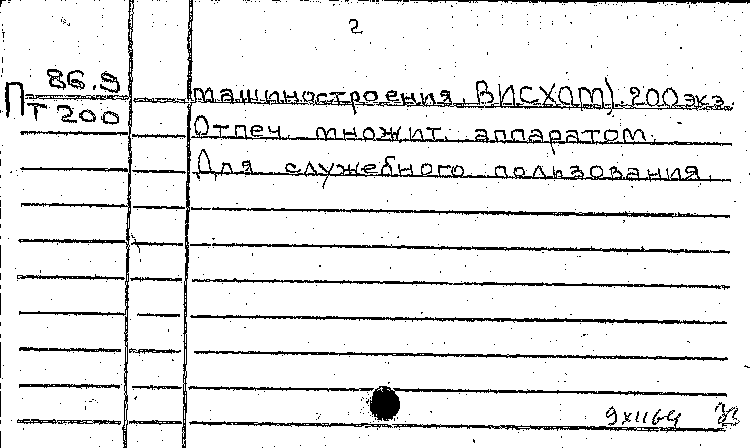 2
86.9
П
Т 200
машиностроения. ВИСХОМ). 200 экз.
Отпеч. множит. аппаратом.
Для служебного пользования.
9 XII 64